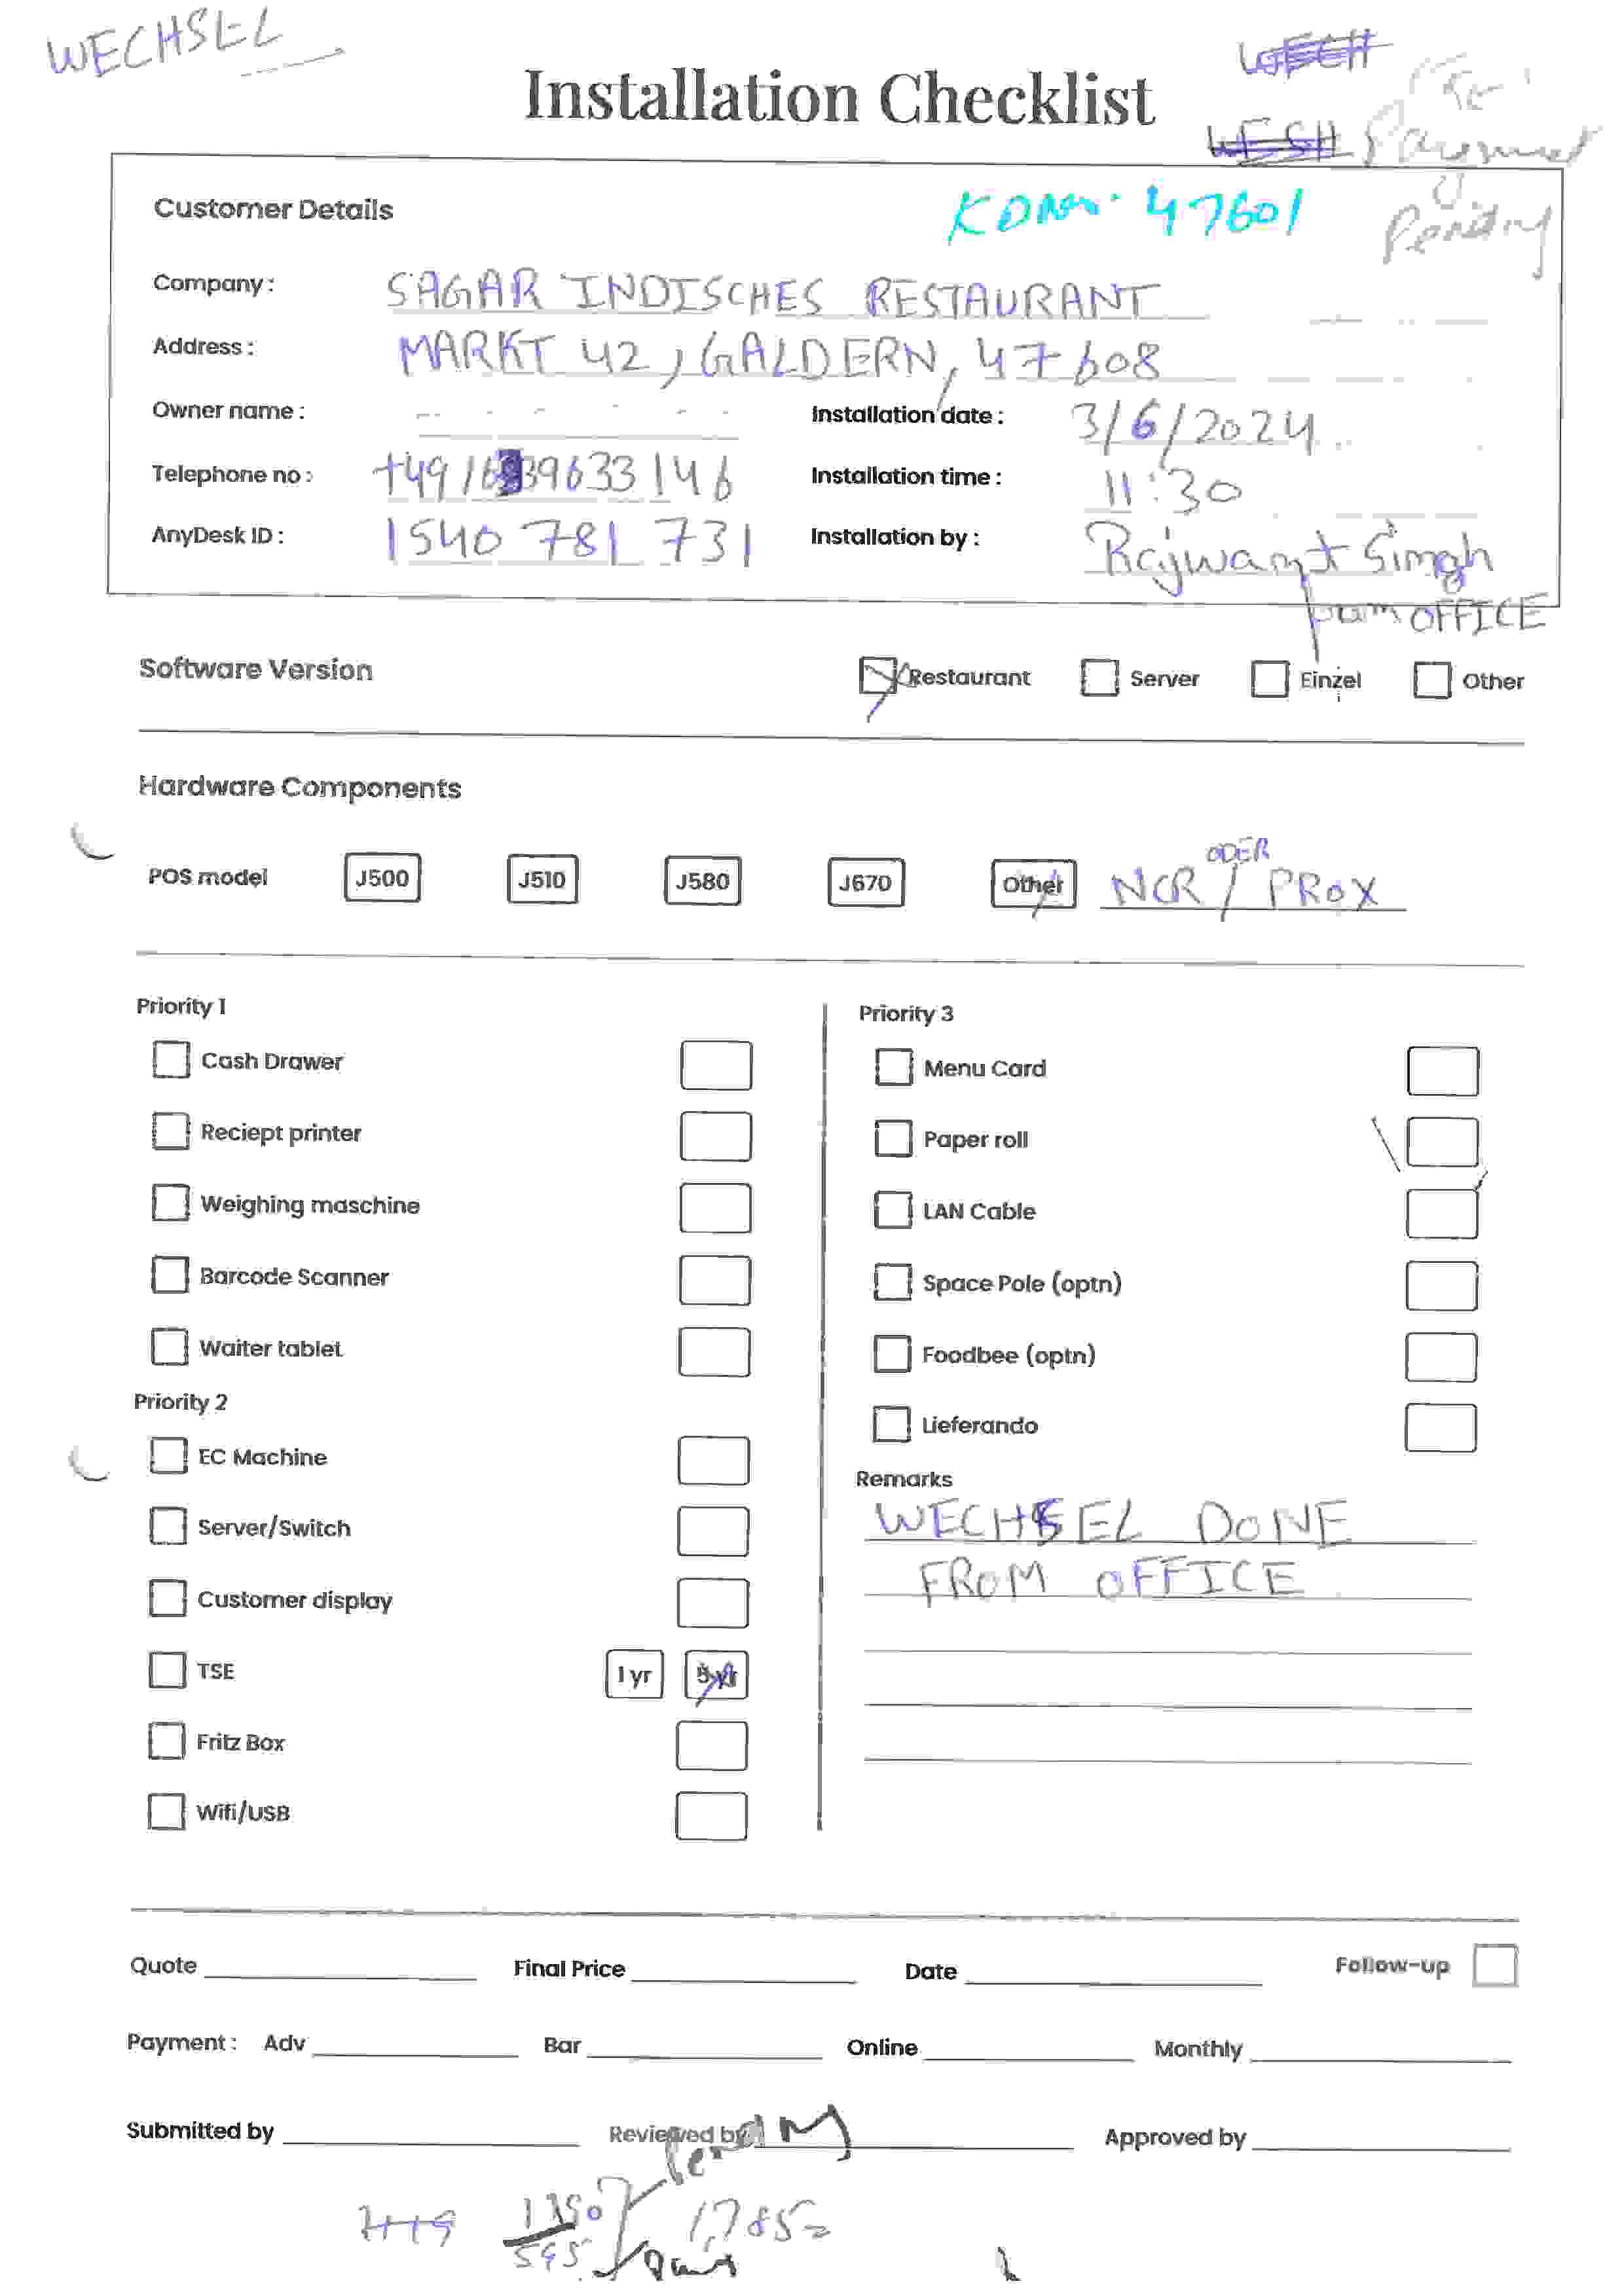 WECHSEL
Installation Checklist
WECH
WESH Payment
Pending
Customer Details
KDNr. 47601
Company: SAGAR INDISCHES RESTAURANT
Address: MARKT 42, GALDERN, 47608
Owner name:
Installation date: 3/6/2024
Telephone no: +4916339633146
Installation time: 11:30
AnyDesk ID: 1540 781 731
Installation by: Rajwant Singh
from OFFICE
Software Version
Restaurant
Server
Einzel
Other
Hardware Components
POS model
J500
J510
J580
J670
Other
NCR / ODER PROX
Priority 1
Cash Drawer
Reciept printer
Weighing maschine
Barcode Scanner
Waiter tablet
Priority 2
EC Machine
Server/Switch
Customer display
TSE 1 yr 5 yr
Fritz Box
Wifi/USB
Priority 3
Menu Card
Paper roll
LAN Cable
Space Pole (optn)
Foodbee (optn)
Lieferando
Remarks
WECHSEL DONE
FROM OFFICE
Quote
Final Price
Date
Follow-up
Payment: Adv
Bar
Online
Monthly
Submitted by
Reviewed by
Approved by
595
1,785